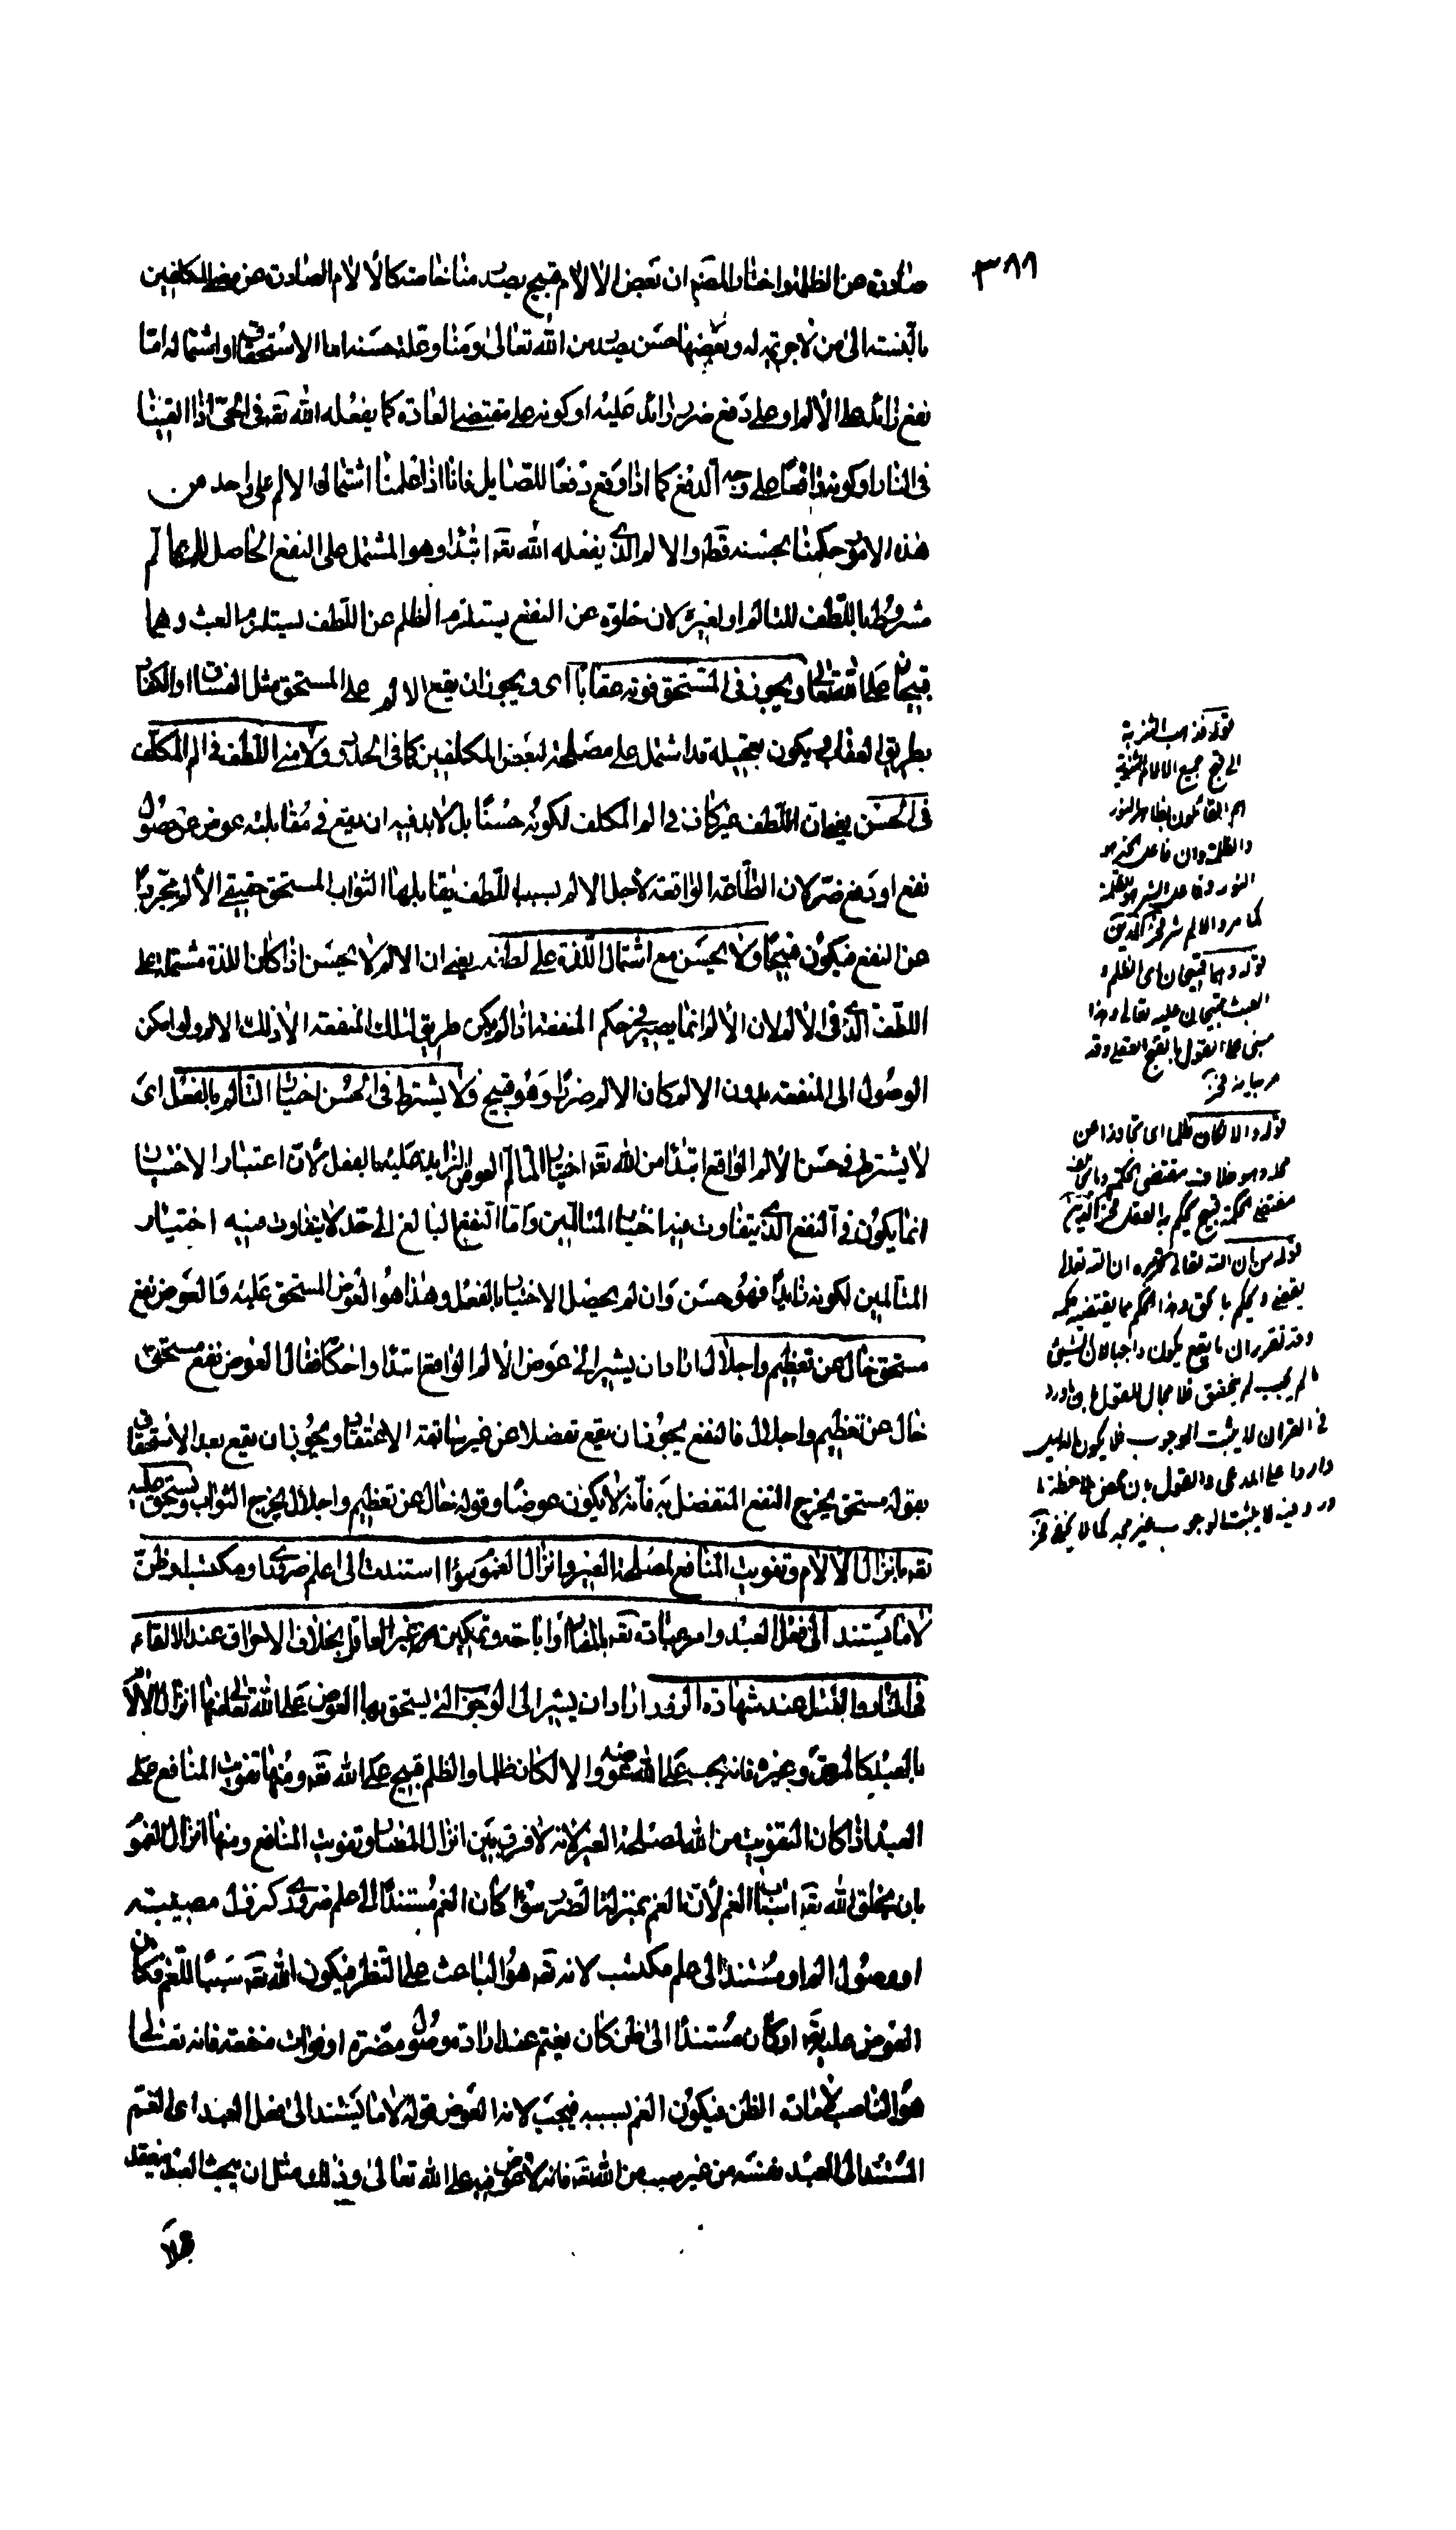 ٣٨٨
صادرة عن الظلمة واختار المصنف ان بعض الالام قبيح يصدر منا خاصة كالالام الصادرة عن بعض المكلفين
بالنسبة الى من لا جرم له وبعضها حسن يصدر من الله تعالى ومنا وعلة حسنه اما الاستحقاق او اشتماله اما
نفع زائد على الالم او على دفع ضرر زائد عليه او كونه على مقتضى العادة كما يفعله الله تعه في الحي اذا القيناه
في النار او كونه واقعا على وجه الدفع كما اذا وقع دفعا للصايل فانا اذا علمنا اشتمال الالم على واحد من
هذه الامور حكمنا بحسنه قطعا والالم الذي يفعله الله تعه ابتداء وهو المشتمل على النفع الحاصل للمتألم
مشروط باللطف للمتألم او لغيره لان خلوه عن النفع يستلزم الظلم عن اللطف يستلزم العبث وهما
قبيحان على الله تعالى ويجوز في المستحق كونه عقابا اى ويجوز ان يقع الالم على المستحق مثل الفساق او الكفار
بطريق العقاب ويكون تعجيله قد اشتمل على مصلحة لبعض المكلفين كما في الحدود ولا يكفى اللطف في الم المكلف
في الحسن يعنى ان اللطف غير كاف في الم المكلف لكونه حسنا بل لا بد فيه ان يقع في مقابلته عوض عن حصول
نفع او دفع ضرر لان الطاعة الواقعة لاجل الالم بسبب اللطف يقابلها الثواب المستحق فيبقى الالم مجردا
عن النفع فيكون قبيحا ولا يحسن مع اشتمال اللذة على لطفه يعنى ان الالم لا يحسن اذا كان اللذة مشتملة على
اللطف الذي في الالم لان الالم انما يصير في حكم المنفعة اذا لم يكن طريق لتلك المنفعة الا ذلك الالم ولو امكن
الوصول الى المنفعة بدون الالم كان الالم ضررا وهو قبيح ولا يشترط في الحسن اختيار المتألم بالفعل اى
لا يشترط في حسن الالم الواقع ابتداء من الله تعه اختيار المتألم العوض الزايد عليه بالفعل لان اعتبار الاختيار
انما يكون في النفع الذي يتفاوت فيه اختيار المتألمين واما النفع البالغ الى حد لا يتفاوت فيه اختيار
المتألمين لكونه زايدا فهو حسن وان لم يحصل الاختيار بالفعل وهذا هو العوض المستحق عليه فالعوض نفع
مستحق خال عن تعظيم واجلال اراد ان يشير الى عوض الالم الواقع ابتداء واحكامه فقال العوض نفع مستحق
خال عن تعظيم واجلال فالنفع يجوز ان يقع تفضلا عن غير سابقة الاستحقاق ويجوز ان يقع بعد الاستحقاق
بقوله مستحق يخرج النفع المتفضل به فانه لا يكون عوضا وقوله خال عن تعظيم واجلال يخرج الثواب ويستحق عليه
تعه بانزال الالام وتفويت المنافع لمصلحة الغير وانزال الغموم سواء استندت الى علم ضروري او مكتسب او ظن
لا ما يستند الى فعل العبد وامر عباده تعه بالمضار او اباحته وتمكين غير العاقل بخلاف الاحراق عند الالقاء
في النار والقتل عند شهادة الزور اراد ان يشير الى الوجوه التي يستحق بها العوض على الله تعالى منها انزال الالام
بالعبد كالمرض وغيره فانه يجب على الله عوضه والا لكان ظلما والظلم قبيح على الله تعه ومنها تفويت المنافع على
العبد اذا كان التفويت من الله لمصلحة الغير لانه لا فرق بين انزال المضار وتفويت المنافع ومنها انزال الغموم
بان يخلق الله تعه اسباب الغم لان الغم بمنزلة الضرر سواء كان الغم مستندا الى علم ضروري كنزول مصيبته
او وصول الم او مستندا الى علم مكتسب لانه تعه هو الباعث على النظر فيكون الله تعه سببا للغم فكان
العوض عليه تعه او كان مستندا الى ظن كان يغتم عند امارة وصول مضرة او فوات منفعة فانه تعالى
هو الناصب لامارة الظن فيكون الغم بسببه فيجب لانه العوض قوله لا ما يستند الى فعل العبد اى الغم
المستند الى العبد نفسه من غير سبب من الله تعه فانه لا عوض فيه على الله تعالى وذلك مثل ان يبحث العبد فيعتقد
جهلا
قوله فذهب الثنوية
الى قبح جميع الالام الثنوية
هم القائلون
والظلمة وان فاعل الخير هو
النور وفاعل الشر هو الظلمة
كما مر والالم شر فخر الدين
قوله وهما قبيحان اى الظلم و
العبث قبيحان عليه تعالى وهذا
مبنى على القول بالقبح العقلى وقد
مر بيانه فخر
قوله والا لكان ظلما اى تجاوزا عن
محله وهو خلاف مقتضى الحكمة وما خالف
مقتضى الحكمة قبيح يحكم به العقل فخر الدين
قوله من ان الله تعالى ان الله تعالى
يقضى ويحكم بالحق وهذا الحكم مما يقتضيه حكمه
وقد تقرر ان ما يقع يكون واجبا لان الشئ
ما لم يجب لم يتحقق فلا مجال للقول بان ما ورد
في القران لا يثبت الوجوب فلا يكون الدليل
واردا على المدعى والقول بان بملاحظة ما
ورد فيه لا يثبت الوجوب غير مجد كما لا يخفى فخر